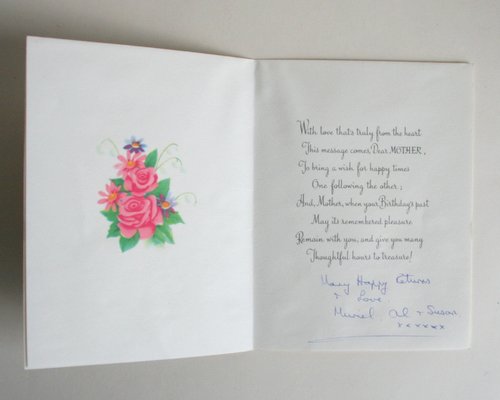 With love that's truly from the heart
This message comes, Dear MOTHER,
To bring a wish for happy times
One following the other;
And, Mother, when your Birthday's past
May its remembered pleasure
Remain with you, and give you many
Thoughtful hours to treasure!
Many Happy Returns
& Love.
Muriel, Al + Susan
xxxxxx